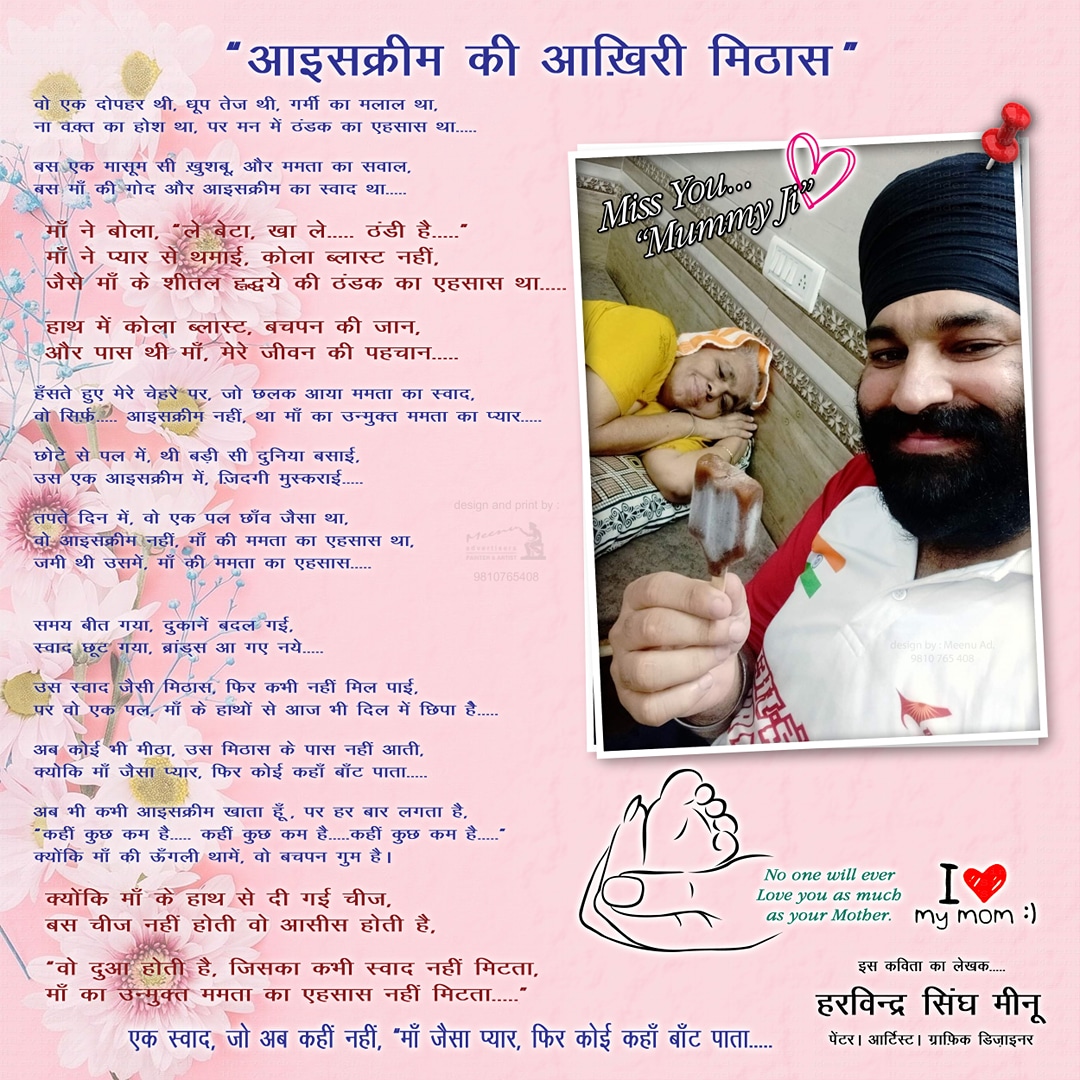 “आइसक्रीम की आख़िरी मिठास”
वो एक दोपहर थी, धूप तेज थी, गर्मी का मलाल था,
ना वक़्त का होश था, पर मन में ठंडक का एहसास था.....
बस एक मासूम सी ख़ुशबू, और ममता का सवाल,
बस माँ की गोद और आइसक्रीम का स्वाद था.....
माँ ने बोला, “ले बेटा, खा ले..... ठंडी है.....”
माँ ने प्यार से थमाई, कोला ब्लास्ट नहीं,
जैसे माँ के शीतल हृद्धये की ठंडक का एहसास था.....
हाथ में कोला ब्लास्ट, बचपन की जान,
और पास थी माँ, मेरे जीवन की पहचान.....
हँसते हुए मेरे चेहरे पर, जो छलक आया ममता का स्वाद,
वो सिर्फ..... आइसक्रीम नहीं, था माँ का उन्मुक्त ममता का प्यार.....
छोटे से पल में, थी बड़ी सी दुनिया बसाई,
उस एक आइसक्रीम में, जिदगी मुस्कराई.....
तपते दिन में, वो एक पल छाँव जैसा था,
वो आइसक्रीम नहीं, माँ की ममता का एहसास था,
जमी थी उसमें, माँ की ममता का एहसास.....
समय बीत गया, दुकानें बदल गई,
स्वाद छूट गया, ब्रांड्स आ गए नये.....
उस स्वाद जैसी मिठास, फिर कभी नहीं मिल पाई,
पर वो एक पल, माँ के हाथों से आज भी दिल में छिपा है.....
अब कोई भी मीठा, उस मिठास के पास नहीं आती,
क्योकि माँ जैसा प्यार, फिर कोई कहाँ बाँट पाता.....
अब भी कभी आइसक्रीम खाता हूँ, पर हर बार लगता है,
“कहीं कुछ कम है..... कहीं कुछ कम है.....कहीं कुछ कम है.....”
क्योंकि माँ की ऊँगली थामें, वो बचपन गुम है।
क्योंकि माँ के हाथ से दी गई चीज,
बस चीज नहीं होती वो आसीस होती है,
“वो दुआ होती है, जिसका कभी स्वाद नहीं मिटता,
माँ का उन्मुक्त ममता का एहसास नहीं मिटता.....”
एक स्वाद, जो अब कहीं नहीं, “माँ जैसा प्यार, फिर कोई कहाँ बाँट पाता.....
design and print by :
Meenu
advertisers
PAINTER & ARTIST
9810765408
Miss You...
“Mummy Ji”
design by : Meenu Ad.
9810 765 408
No one will ever
Love you as much
as your Mother.
I
my mom :)
इस कविता का लेखक.....
हरविन्द्र सिंघ मीनू
पेंटर। आर्टिस्ट। ग्राफ़िक डिज़ाइनर